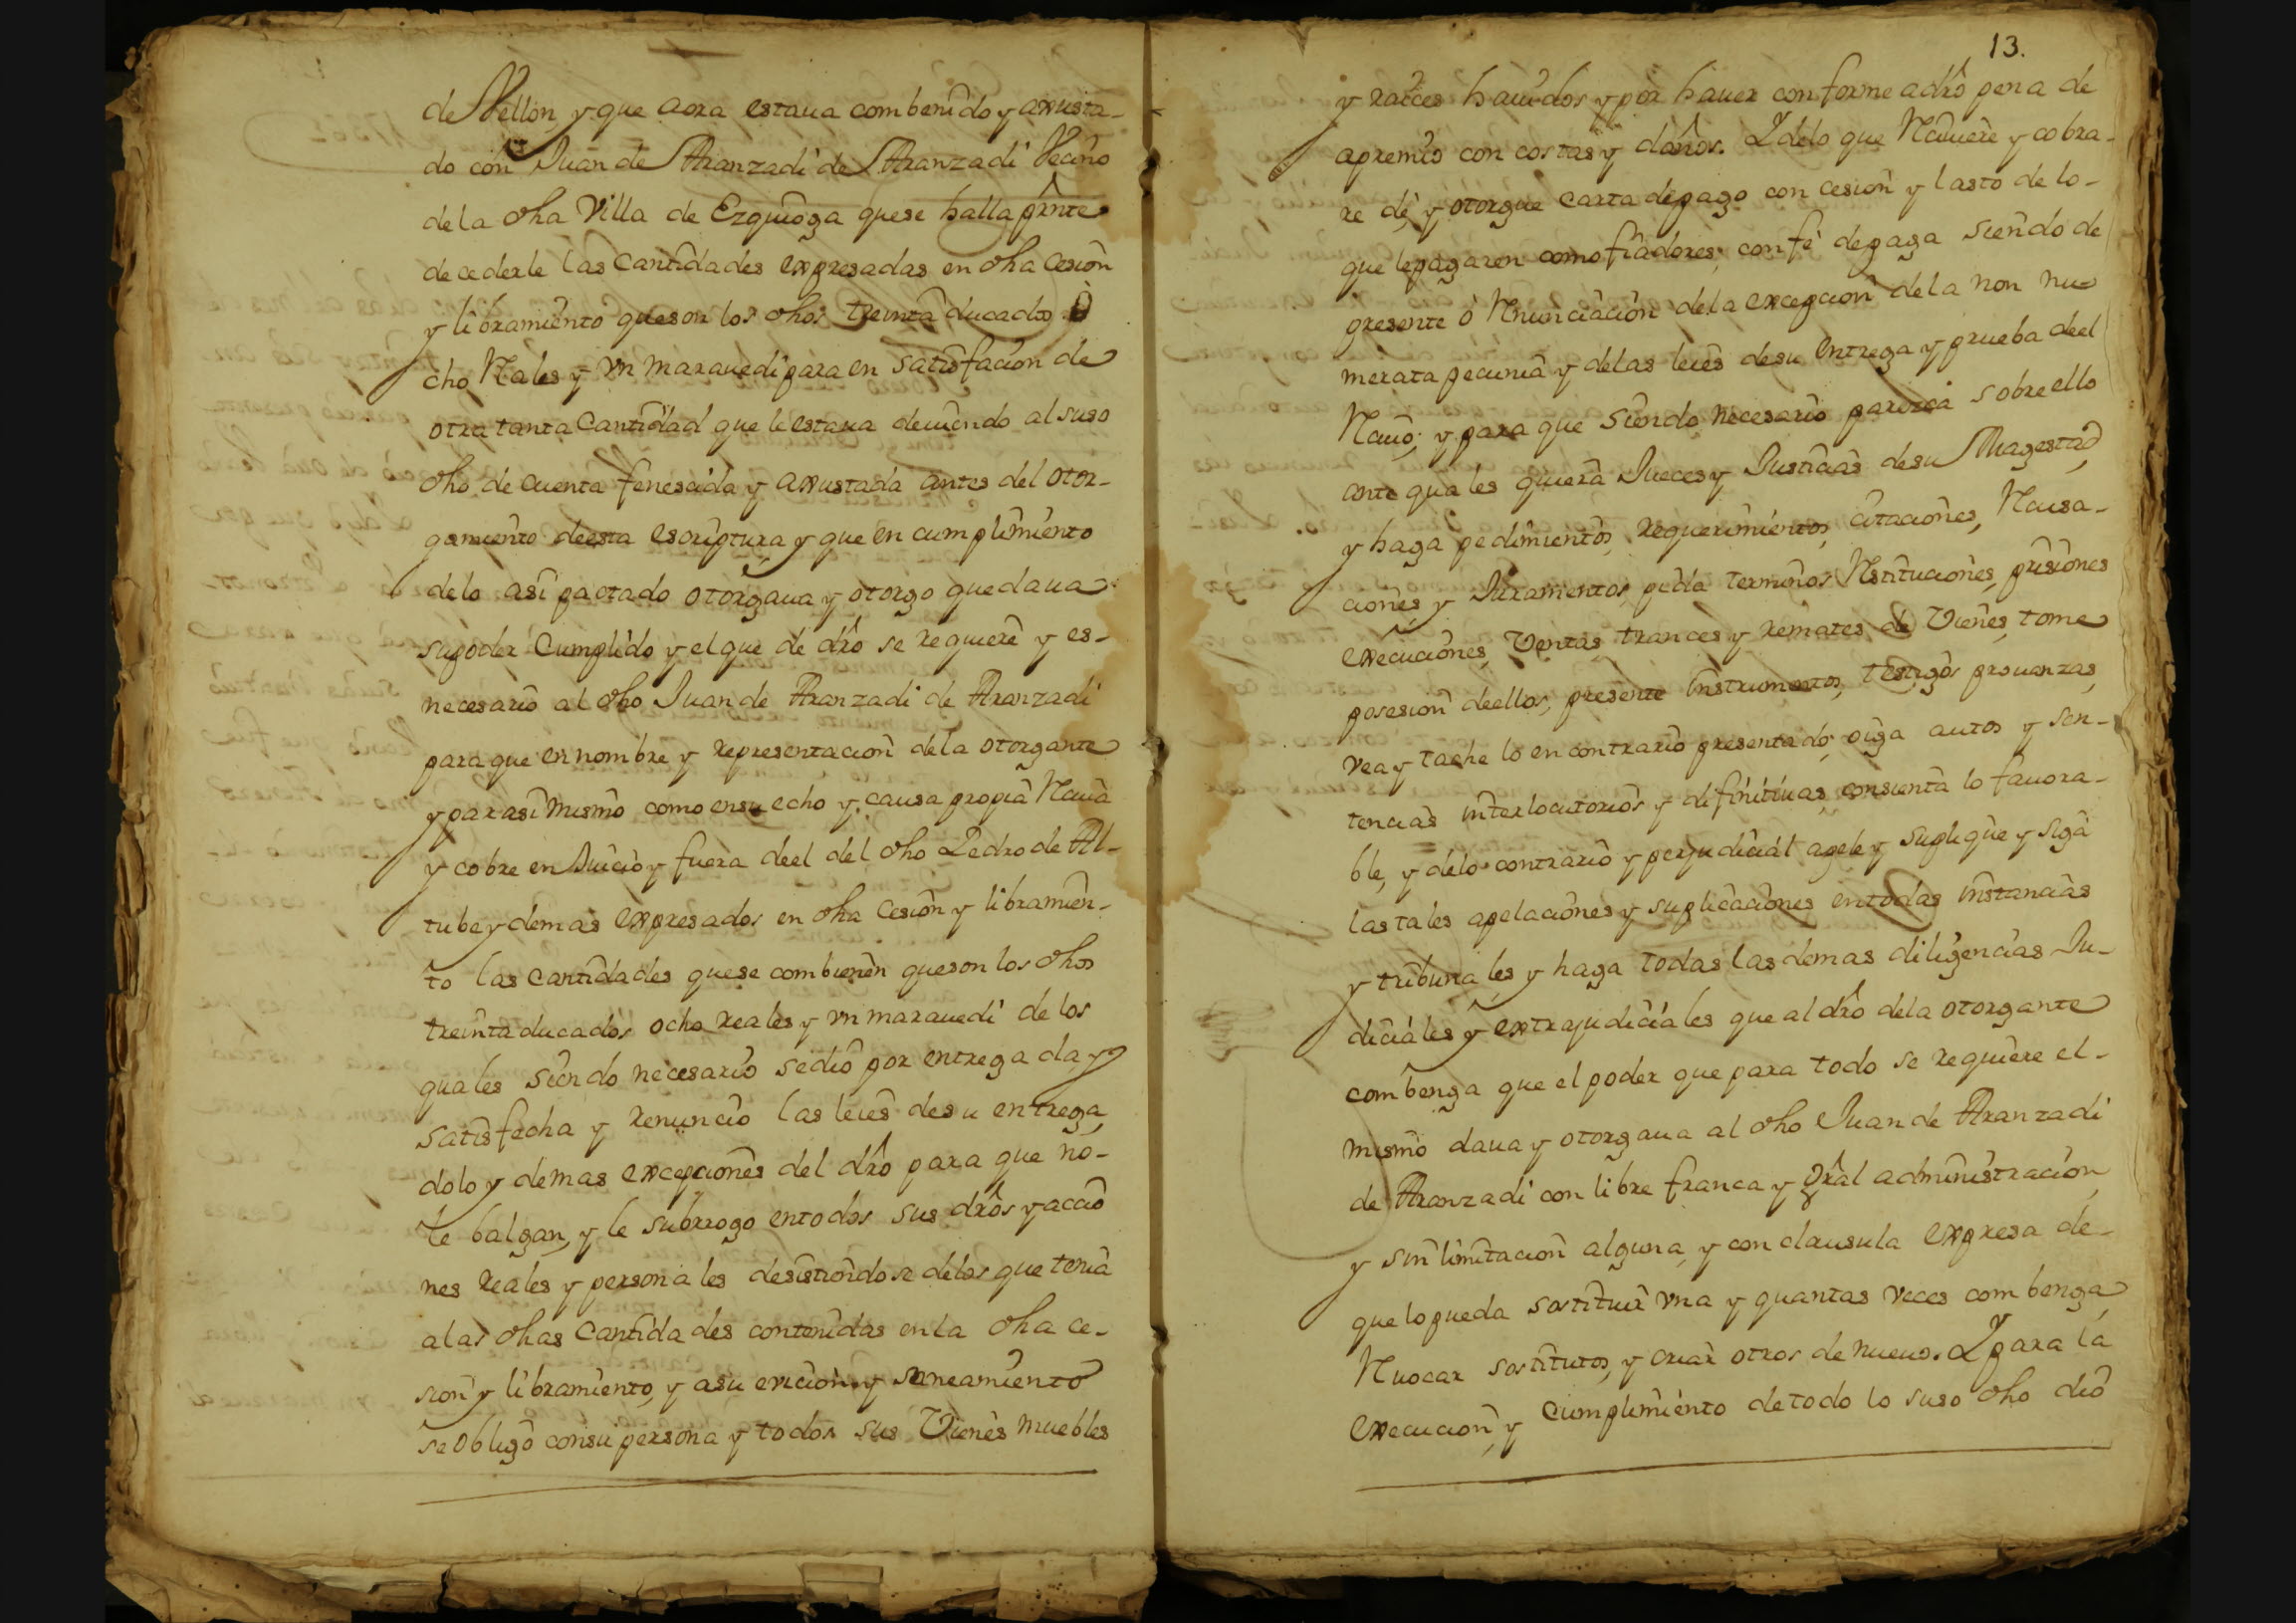 de Vellon, y que aora estaua combenido y axusta-
do con Juan de Aranzadi de Aranzadi Vecino
de la dha Villa de Ezquioga que se halla pressnte
de cederle las Cantidades expresadas en dha Cesion
y libramiento que son los dhos treinta ducados O
cho Rales y vn marauedi para en satisfacion de
otra tanta Cantidad que le estaua deuiendo al suso
dho de cuenta fenescida y axustada antes del otor-
gamiento de esta escriptura, y que en cumplimiento
de lo asi pactado otorgaua y otorgo que daua
su poder Cumplido y el que de dro se requiere y es-
necesario al dho Juan de Aranzadi de Aranzadi
para que en nombre y representacion de la otorgante
y para si mismo como en su echo y causa propia Reciua
y cobre en Juicio y fuera de el del dho Pedro de Al-
tube y demas expresados en dha Cesion y libramien-
to las cantidades que se combienen que son los dhos
treinta ducados ocho reales y vn marauedi de los
quales siendo necesario se dio por entregada y
satisfecha y renuncio las leies de su entrega,
dolo y demas excepciones del dro para que no-
le balgan, y le subrrogo en todos sus dros y accio
nes reales y personales desistiendose de los que tenia
a las dhas Cantidades contenidas en la dha ce-
sion y libramiento, y a su euicion y saneamiento
se obligo con su persona y todos sus Vienes muebles
13.
y raices hauidos y por hauer conforme a dro pena de
apremio con costas y daños. Y de lo que Reciuiere y cobra-
re dé, y otorgue carta de pago con cesion y lasto de lo-
que le pagaren como fiadores, con fé de paga siendo de
presente ó Renunciacion de la excepcion de la non nu-
merata pecunia y de las leies de su entrega y prueba de el
Reciuo; y para que siendo necesario parezca sobre ello
ante quales quiera Jueces y Justicias de su Magestad,
y haga pedimientos, requerimientos, citaciones, Recusa-
ciones, y Juramentos, pida terminos Restituciones, prisiones
execuciones, Ventas, trances y remates de Vienes, tome
posesion de ellos, presente instrumentos, testigos prouanzas,
vea y tache lo en contrario presentado, oiga autos y sen-
tencias interlocutorios y difinitiuas, consienta lo fauora-
ble, y de lo contrario y perjudicial apele y suplique y siga
las tales apelaciones y suplicaciones en todas instancias
y tribunales, y haga todas las demas diligencias Ju-
diciales y extrajudiciales que al dro de la otorgante
combenga que el poder que para todo se requiere el-
mismo daua y otorgaua al dho Juan de Aranzadi
de Aranzadi con libre franca y gral administracion,
y sin limitacion alguna, y con clausula expresa de-
que lo pueda sostituir vna y quantas veces combenga,
Reuocar sostitutos, y criar otros de nueuo. Y para la
execucion, y cumplimiento de todo lo suso dho dio